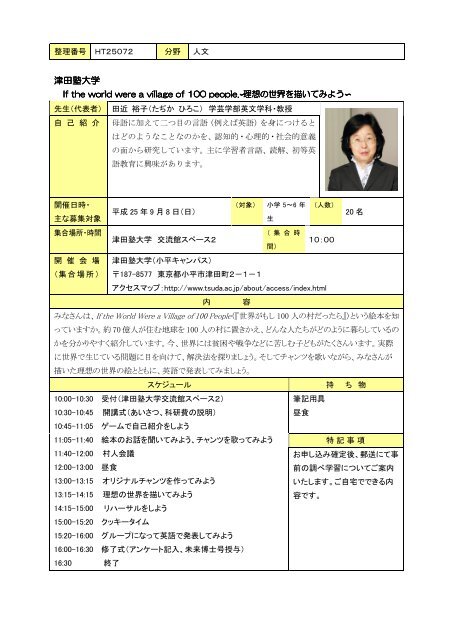 整理番号 HT25072 分野 人文
津田塾大学
If the world were a village of 100 people,~理想の世界を描いてみよう~
先生(代表者) 田近 裕子(たぢか ひろこ) 学芸学部英文学科・教授
自己紹介 母語に加えて二つ目の言語(例えば英語)を身につけると
はどのようなことなのかを、認知的・心理的・社会的意義
の面から研究しています。主に学習者言語、読解、初等英
語教育に興味があります。
開催日時・
主な募集対象
平成 25 年 9 月 8 日(日)
(対象) 小学 5~6 年
生
(人数) 20 名
集合場所・時間
津田塾大学 交流館スペース2
(集合時
間)
10:00
開催会場
(集合場所)
津田塾大学(小平キャンパス)
〒187-8577 東京都小平市津田町2-1-1
アクセスマップ:http://www.tsuda.ac.jp/about/access/index.html
内 容
みなさんは、If the World Were a Village of 100 People(『世界がもし 100 人の村だったら』)という絵本を知
っていますか。約 70 億人が住む地球を 100 人の村に置きかえ、どんな人たちがどのように暮らしているの
かを分かりやすく紹介しています。今、世界には貧困や戦争などに苦しむ子どもがたくさんいます。実際
に世界で生じている問題に目を向けて、解決法を探りましょう。そしてチャンツを歌いながら、みなさんが
描いた理想の世界の絵とともに、英語で発表してみましょう。
スケジュール
10:00-10:30 受付(津田塾大学交流館スペース2)
10:30-10:45 開講式(あいさつ、科研費の説明)
10:45-11:05 ゲームで自己紹介をしよう
11:05-11:40 絵本のお話を聞いてみよう、チャンツを歌ってみよう
11:40-12:00 村人会議
12:00-13:00 昼食
13:00-13:15 オリジナルチャンツを作ってみよう
13:15-14:15 理想の世界を描いてみよう
14:15-15:00 リハーサルをしよう
15:00-15:20 クッキータイム
15:20-16:00 グループになって英語で発表してみよう
16:00-16:30 修了式(アンケート記入、未来博士号授与)
16:30 終了
持ち物
筆記用具
昼食
特記事項
お申し込み確定後、郵送にて事
前の調べ学習についてご案内
いたします。ご自宅でできる内
容です。